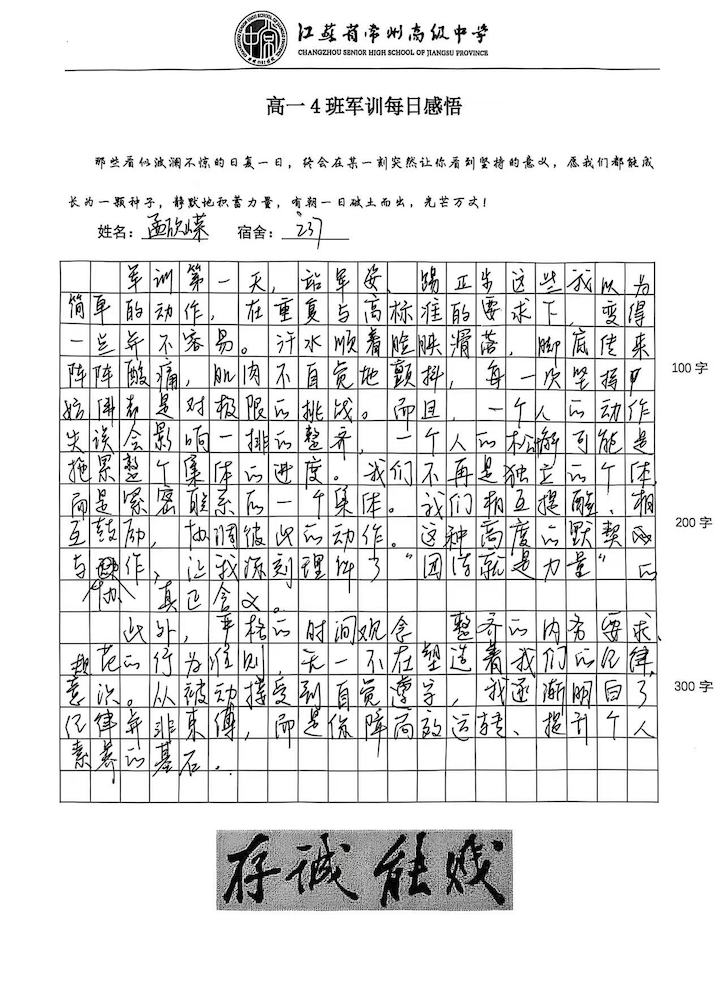 江苏省常州高级中学
CHANGZHOU SENIOR HIGH SCHOOL OF JIANGSU PROVINCE
高一4班军训每日感悟
那些看似波澜不惊的日复一日，终会在某一刻突然让你看到坚持的意义，愿我们都能成
长为一颗种子，静默地积蓄力量，有朝一日破土而出，光芒万丈！
姓名：孟欣嵘 宿舍：237
军训第一天，站军姿、踢正步这些我以为
简单的动作，在重复与高标准的要求下，变得
一些并不容易。汗水顺着脸颊滑落，脚底传来
阵阵酸痛，肌肉不自觉地颤抖，每一次坚持
100字
都是对极限的挑战。而且，一个人的动作
失误会影响一排的整齐，一个人的松懈可能是
拖累整个集体的进度。我们不再是独立的个体，
而是紧密联系的一个集体。我们相互提醒、相
互鼓励，协调彼此的动作。这种高度的默契
200字
与协作，让我深刻理解了“团结就是力量”的
真正含义。
此外，严格的时间观念、整齐的内务要求、
规范的行为准则，无一不在塑造着我们的纪律
意识。从被动接受到自觉遵守，我逐渐明白了
300字
纪律并非束缚，而是保障高效运转、提升个人
素养的基石。
存诚能贱